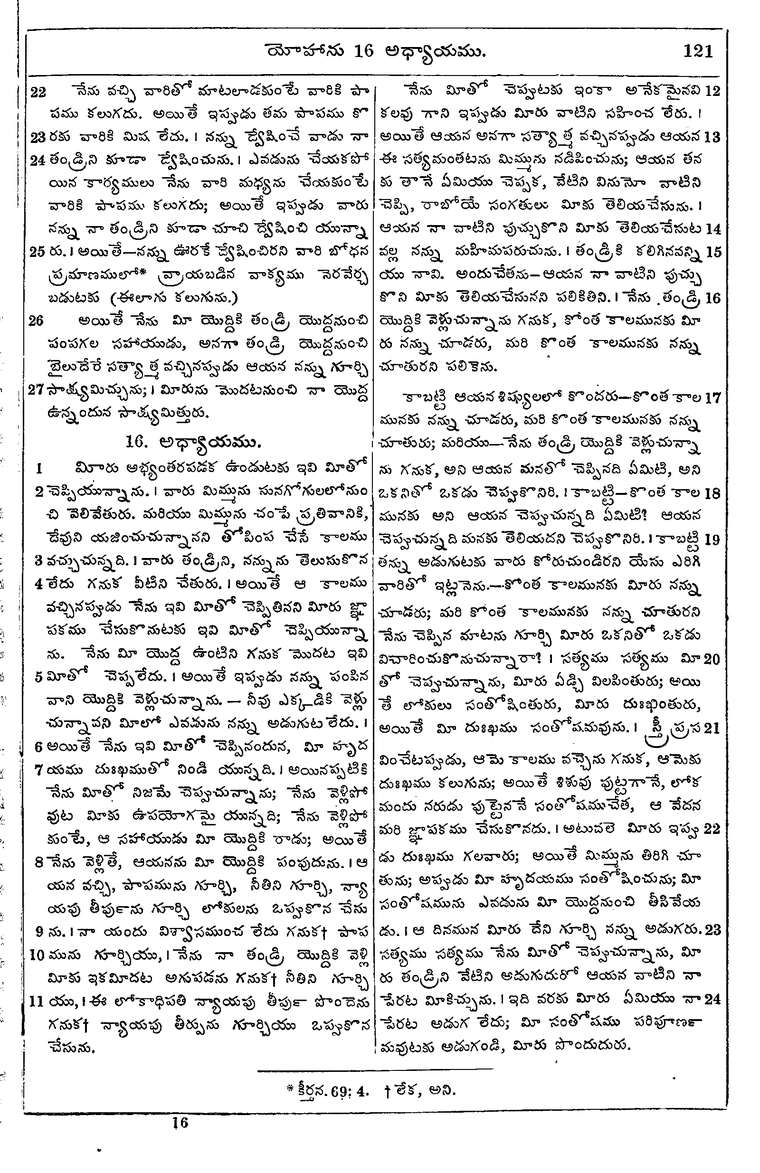 యోహాను 16 అధ్యాయము. 121
22 నేను వచ్చి వారితో మాటలాడకుంటే వారికి పా
పము కలుగదు. అయితే ఇప్పుడు తమ పాపము కొ
23 రకు వారికి మిష లేదు. । నన్ను ద్వేషించే వాడు నా
24 తండ్రిని కూడా ద్వేషించును. । ఎవడును చేయకపో
యిన కార్యములు నేను వారి మధ్యను చేయకుంటే
వారికి పాపము కలుగదు; అయితే ఇప్పుడు వారు
నన్ను నా తండ్రిని కూడా చూచి ద్వేషించి యున్నా
25 రు. । అయితే—నన్ను ఊరకే ద్వేషించిరని వారి బోధన
ప్రమాణములో* వ్రాయబడిన వాక్యము నెరవేర్చ
బడుటకు (ఈలాగు కలుగును.)
26 అయితే నేను మీ యొద్దికి తండ్రి యొద్దనుంచి
పంపగల సహాయుడు, అనగా తండ్రి యొద్దనుంచి
బైలుదేరే సత్యాత్మ వచ్చినప్పుడు ఆయన నన్ను గూర్చి
27 సాక్ష్యమిచ్చును; । మీరును మొదటనుంచి నా యొద్ద
ఉన్నందున సాక్ష్యమిత్తురు.
16. అధ్యాయము.
1 మీరు అభ్యంతరపడక ఉండుటకు ఇవి మీతో
2 చెప్పియున్నాను. । వారు మిమ్మును సునగోగులలోనుం
చి వెలివేతురు. మరియు మిమ్మును చంపే ప్రతివానికి,
దేవుని యజించుచున్నానని తోపింప చేసే కాలము
3 వచ్చుచున్నది. । వారు తండ్రిని, నన్నును తెలుసుకొన
4 లేదు గనుక వీటిని చేతురు. । అయితే ఆ కాలము
వచ్చినప్పుడు నేను ఇవి మీతో చెప్పితినని మీరు జ్ఞా
పకము చేసుకొనుటకు ఇవి మీతో చెప్పియున్నా
ను. నేను మీ యొద్ద ఉంటిని గనుక మొదట ఇవి
5 మీతో చెప్పలేదు. । అయితే ఇప్పుడు నన్ను పంపిన
వాని యొద్దికి వెళ్లుచున్నాను. — నీవు ఎక్కడికి వెళ్లు
చున్నావని మీలో ఎవడును నన్ను అడుగుట లేదు. ।
6 అయితే నేను ఇవి మీతో చెప్పినందున, మీ హృద
7 యము దుఃఖముతో నిండి యున్నది. । అయినప్పటికి
నేను మీతో నిజమే చెప్పుచున్నాను; నేను వెళ్లిపో
వుట మీకు ఉపయోగమై యున్నది; నేను వెళ్లిపో
కుంటే, ఆ సహాయుడు మీ యొద్దికి రాడు; అయితే
8 నేను వెళ్లితే, ఆయనను మీ యొద్దికి పంపుదును. । ఆ
యన వచ్చి, పాపమును గూర్చి, నీతిని గూర్చి, న్యా
యపు తీర్పును గూర్చి లోకులను ఒప్పుకొన చేసు
9 ను. । నా యందు విశ్వాసముంచ లేదు గనుక† పాప
10 మును గూర్చియు, । నేను నా తండ్రి యొద్దికి వెళ్లి
మీకు ఇకమీదట అగుపడను గనుక† నీతిని గూర్చి
11 యు, । ఈ లోకాధిపతి న్యాయపు తీర్పు పొందెను
గనుక† న్యాయపు తీర్పును గూర్చియు ఒప్పుకొన
చేసును.
నేను మీతో చెప్పుటకు ఇంకా అనేకమైనవి 12
కలవు గాని ఇప్పుడు మీరు వాటిని సహించ లేరు. ।
అయితే ఆయన అనగా సత్యాత్మ వచ్చినప్పుడు ఆయన 13
ఈ సత్యమంతటను మిమ్మును నడిపించును; ఆయన తన
కు తానే ఏమియు చెప్పక, వేటిని వినునో వాటిని
చెప్పి, రాబోయే సంగతులు మీకు తెలియచేసును. ।
ఆయన నా వాటిని పుచ్చుకొని మీకు తెలియచేసుట 14
వల్ల నన్ను మహిమపరుచును. । తండ్రికి కలిగినవన్ని 15
యు నావి. అందుచేతను— ఆయన నా వాటిని పుచ్చు
కొని మీకు తెలియచేసునని పలికితిని. । నేను తండ్రి 16
యొద్దికి వెళ్లుచున్నాను గనుక, కొంత కాలమునకు మీ
రు నన్ను చూడరు, మరి కొంత కాలమునకు నన్ను
చూతురని పలికెను.
కాబట్టి ఆయన శిష్యులలో కొందరు—కొంత కాల 17
మునకు నన్ను చూడరు, మరి కొంత కాలమునకు నన్ను
చూతురు; మరియు—నేను తండ్రి యొద్దికి వెళ్లుచున్నా
ను గనుక, అని ఆయన మనతో చెప్పినది ఏమిటి, అని
ఒకనితో ఒకడు చెప్పుకొనిరి. । కాబట్టి—కొంత కాల 18
మునకు అని ఆయన చెప్పుచున్నది ఏమిటి? ఆయన
చెప్పుచున్నది మనకు తెలియదని చెప్పుకొనిరి. । కాబట్టి 19
తన్ను అడుగుటకు వారు కోరుచుండిరని యేసు ఎరిగి
వారితో ఇట్లనెను.—కొంత కాలమునకు మీరు నన్ను
చూడరు; మరి కొంత కాలమునకు నన్ను చూతురని
నేను చెప్పిన మాటను గూర్చి మీరు ఒకనితో ఒకడు
విచారించుకొనుచున్నారా? । సత్యము సత్యము మీ 20
తో చెప్పుచున్నాను, మీరు ఏడ్చి విలపింతురు; అయి
తే లోకులు సంతోషింతురు, మీరు దుఃఖింతురు,
అయితే మీ దుఃఖము సంతోషమవును. । స్త్రీ ప్రస 21
వించేటప్పుడు, ఆమె కాలము వచ్చెను గనుక, ఆమెకు
దుఃఖము కలుగును; అయితే శిశువు పుట్టగానే, లోక
మందు నరుడు పుట్టెననే సంతోషముచేత, ఆ వేదన
మరి జ్ఞాపకము చేసుకొనదు. । అటువలె మీరు ఇప్పు 22
డు దుఃఖము గలవారు; అయితే మిమ్మును తిరిగి చూ
తును; అప్పుడు మీ హృదయము సంతోషించును; మీ
సంతోషమును ఎవడును మీ యొద్దనుంచి తీసివేయ
డు. । ఆ దినమున మీరు దేని గూర్చి నన్ను అడుగరు. 23
సత్యము సత్యము నేను మీతో చెప్పుచున్నాను, మీ
రు తండ్రిని వేటిని అడుగుదురో ఆయన వాటిని నా
పేరట మీకిచ్చును. । ఇది వరకు మీరు ఏమియు నా 24
పేరట అడుగ లేదు; మీ సంతోషము పరిపూర్ణ
మవుటకు అడుగండి, మీరు పొందుదురు.
* కీర్తన. 69; 4. † లేక, అని.
16